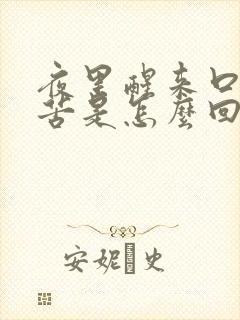 夜里醒来口
苦是怎麼回
安妮 史